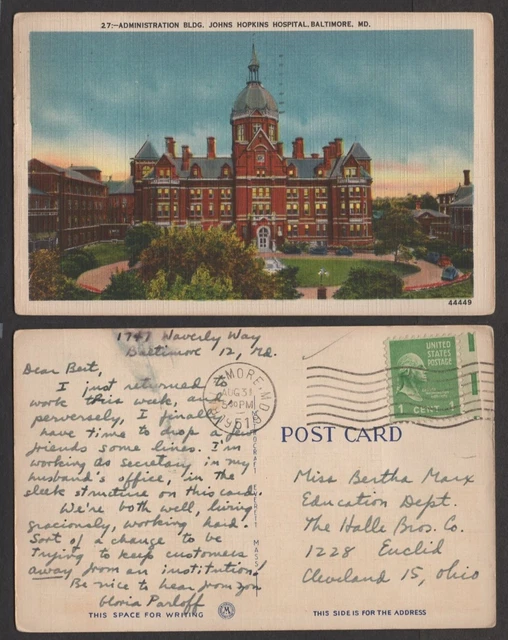 27:-ADMINISTRATION BLDG. JOHNS HOPKINS HOSPITAL, BALTIMORE, MD.
44449
1747 Waverly Way
Baltimore 12, Md.
Dear Beit,
I just returned to
work this week, and
perversely, I finally
have time to drop a few
friends some lines. I'm
working as secretary in my
husband's office, in the
sleek structure on this card.
We're both well, living
graciously, working hard.
Sort of a change to be
trying to keep customers
away from an institution!
Be nice to hear from you
Gloria Parloff
THIS SPACE FOR WRITING
MORE, MD.
AUG 31
5 PM
1951
UNITED
STATES
POSTAGE
1 CENT 1
POST CARD
Miss Bertha Marx
Education Dept.
The Halle Bros. Co.
1228 Euclid
Cleveland 15, Ohio
THIS SIDE IS FOR THE ADDRESS